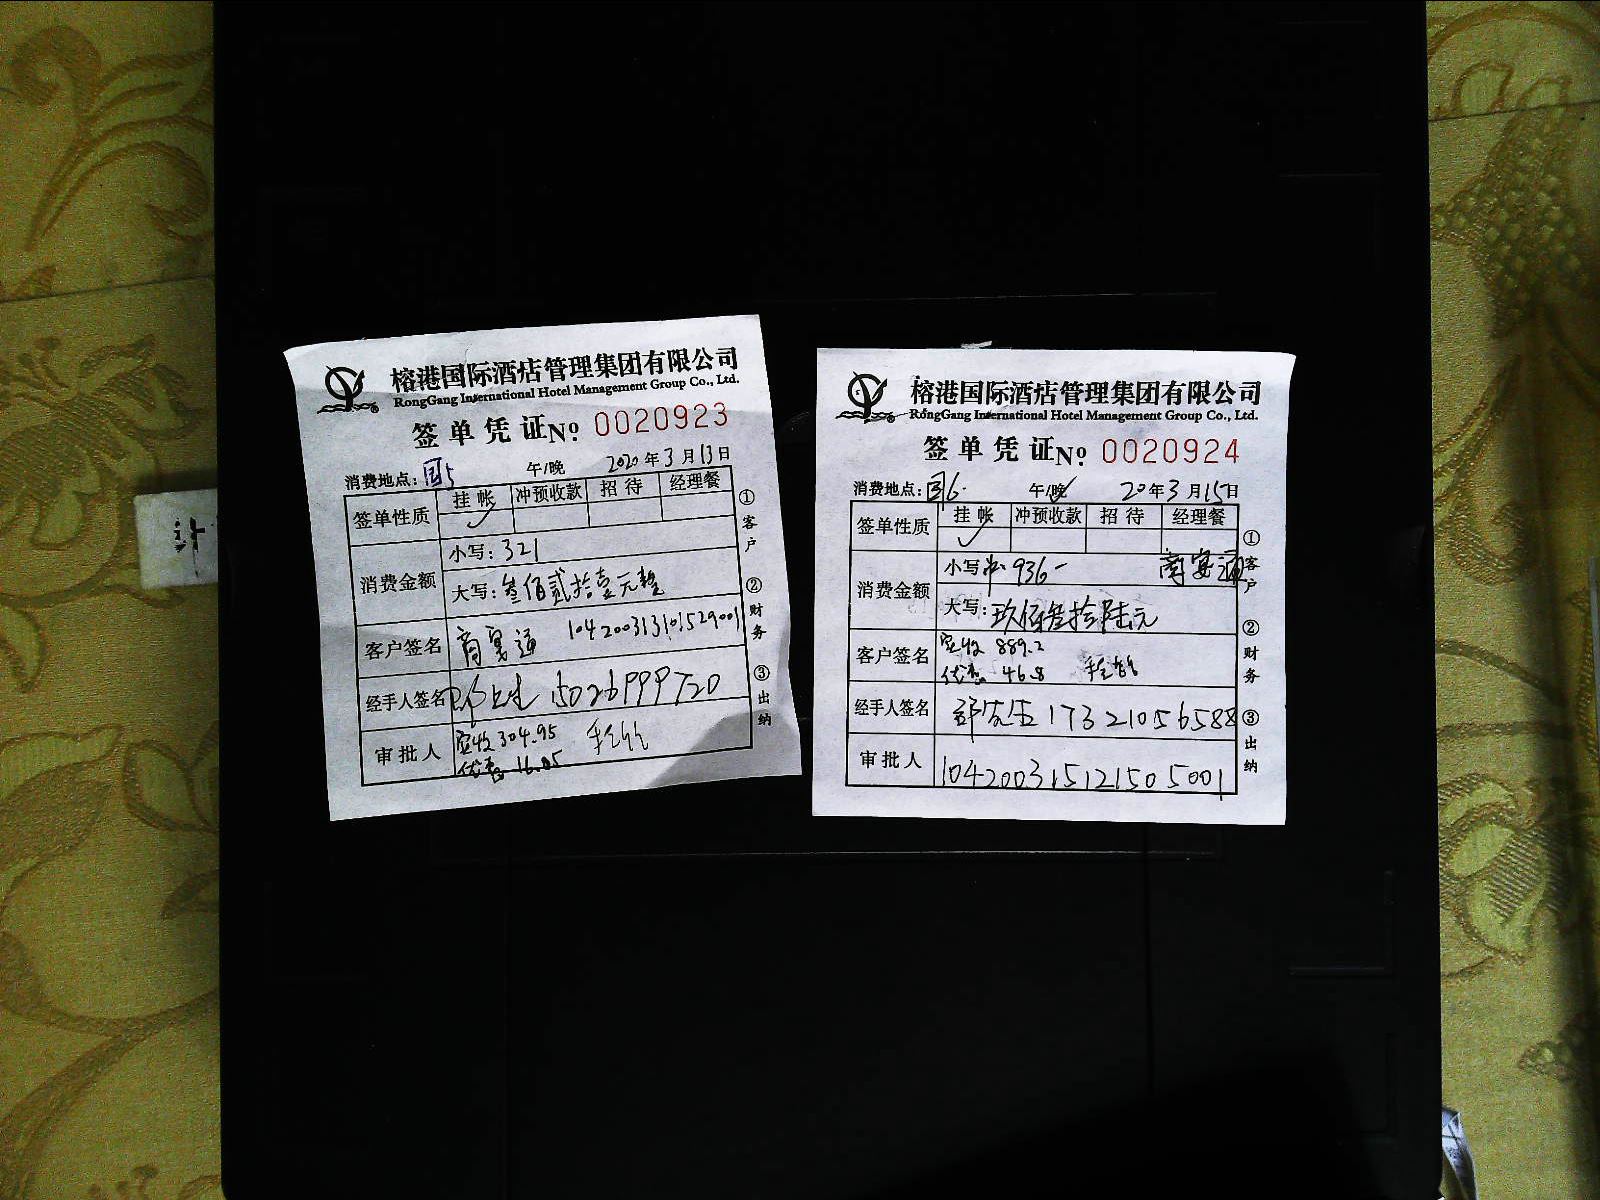 榕港国际酒店管理集团有限公司
RongGang International Hotel Management Group Co., Ltd.
签单凭证 No. 0020923
消费地点: 午/晚 2020年3月13日
签单性质 挂帐 冲预收款 招待 经理餐
✓
消费金额
小写: 321
大写: 叁佰贰拾壹元整
客户签名 商宴通 104200313101529001
经手人签名
审批人 实收 304.95
优惠 16.05
① 客户
② 财务
③ 出纳
榕港国际酒店管理集团有限公司
RongGang International Hotel Management Group Co., Ltd.
签单凭证 No. 0020924
消费地点: 午/晚 2020年3月15日
签单性质 挂帐 冲预收款 招待 经理餐
✓
消费金额
小写: 936- 商宴通
大写: 玖佰叁拾陆元
客户签名 实收 889.2
优惠 46.8
经手人签名 17321056588
审批人 104200315121505001
① 客户
② 财务
③ 出纳
计